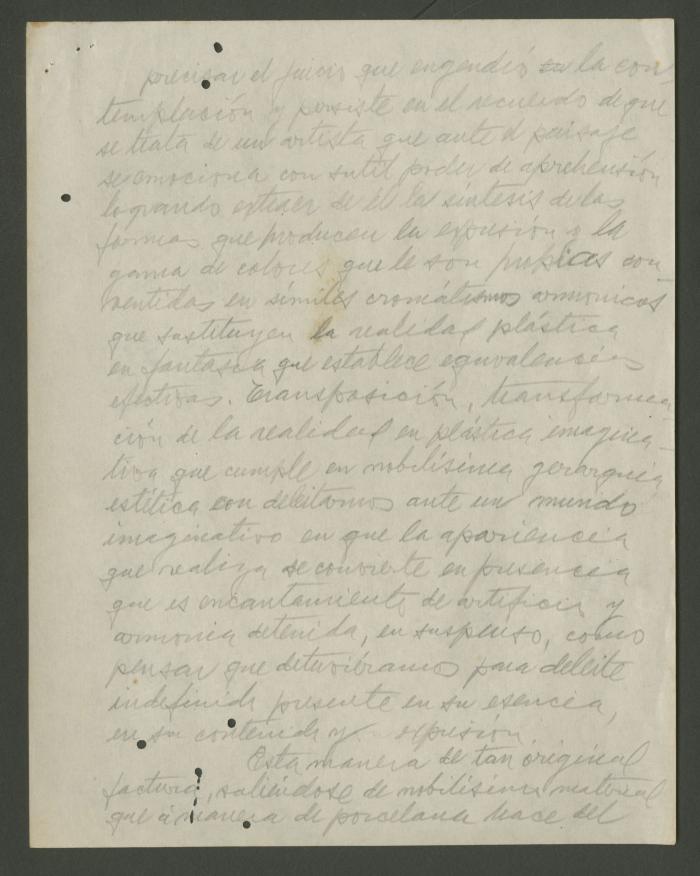 precisar el juicio que engendró en la con-
templación y persiste en el recuerdo de que
se trata de un artista que ante el paisaje
se emociona con sutil poder de aprehensión
logrando extraer de él la síntesis de las
formas que producen la expresión y la
gama de colores que le son propias con-
vertidas en símiles cromátismos armonicos
que sustituyen la realidad plástica
en fantasia que establece equivalencias
efectivas. Transposición, transforma-
ción de la realidad en plástica imagina-
tiva que cumple en nobilísima gerarquia
estética con deleitarnos ante un mundo
imaginativo en que la apariencia
que realiza se convierte en presencia
que es encantamiento de artificio y
armonia detenida, en suspenso, como
pensar que detuviéramos para deleite
indefinido presente en su esencia,
en su contenido y expresión.
Esta manera de tan original
factura, saliéndose de nobilísimo material
que á manera de porcelana hace del